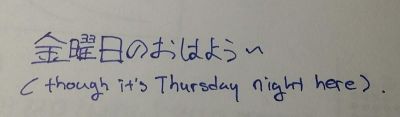 金曜日のおはよう〜
(though it's Thursday night here).